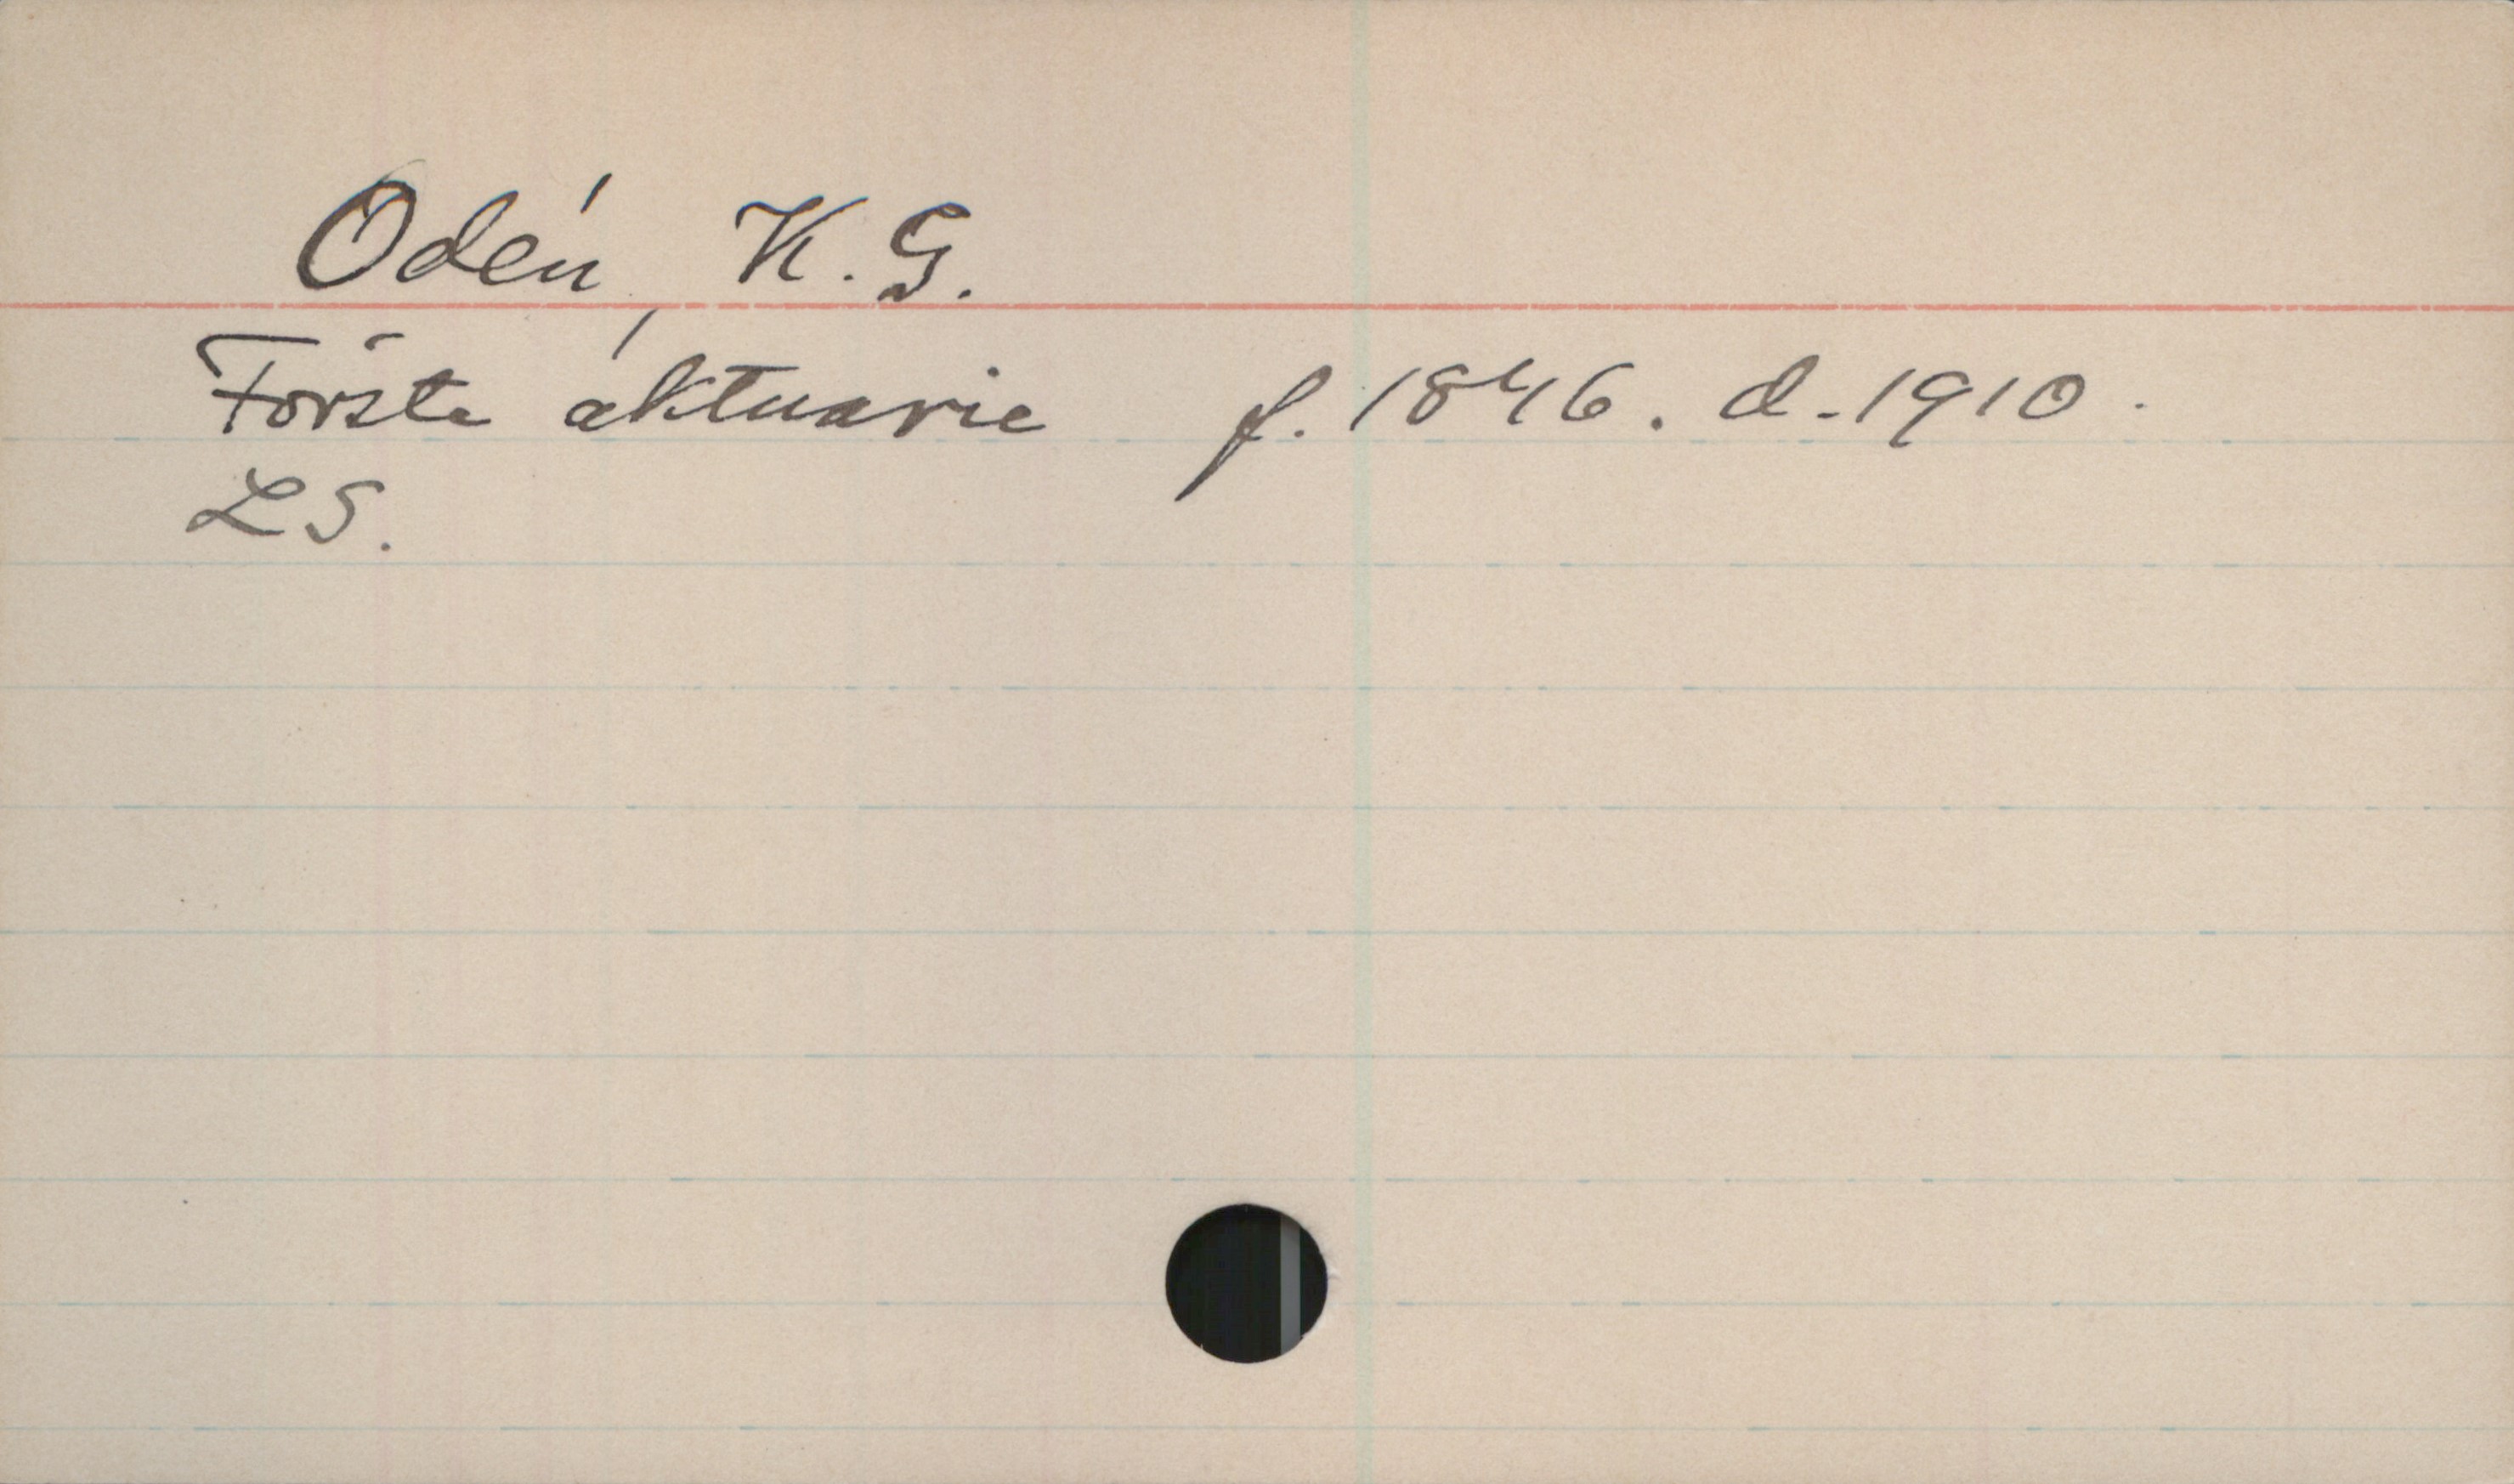 Odén, K. G.
Förste aktuarie f. 1846. d. 1910.
LS.